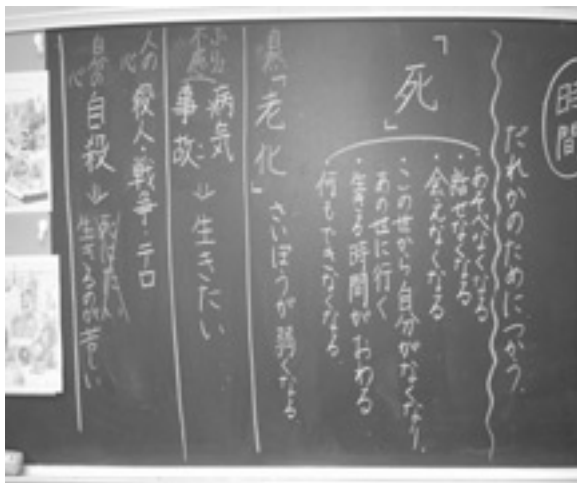 時間
だれかのためにつかう。
「死」
・あそべなくなる
・話せなくなる
・会えなくなる
・この世から自分がなくなり、
あの世に行く
・生きる時間がおわる
何もできなくなる
自然「老化」さいぼうが弱くなる
病気
事故 ⇒ 生きたい
人の心
殺人・戦争・テロ
自分の心
自殺 ⇒ 生きるのが苦しい